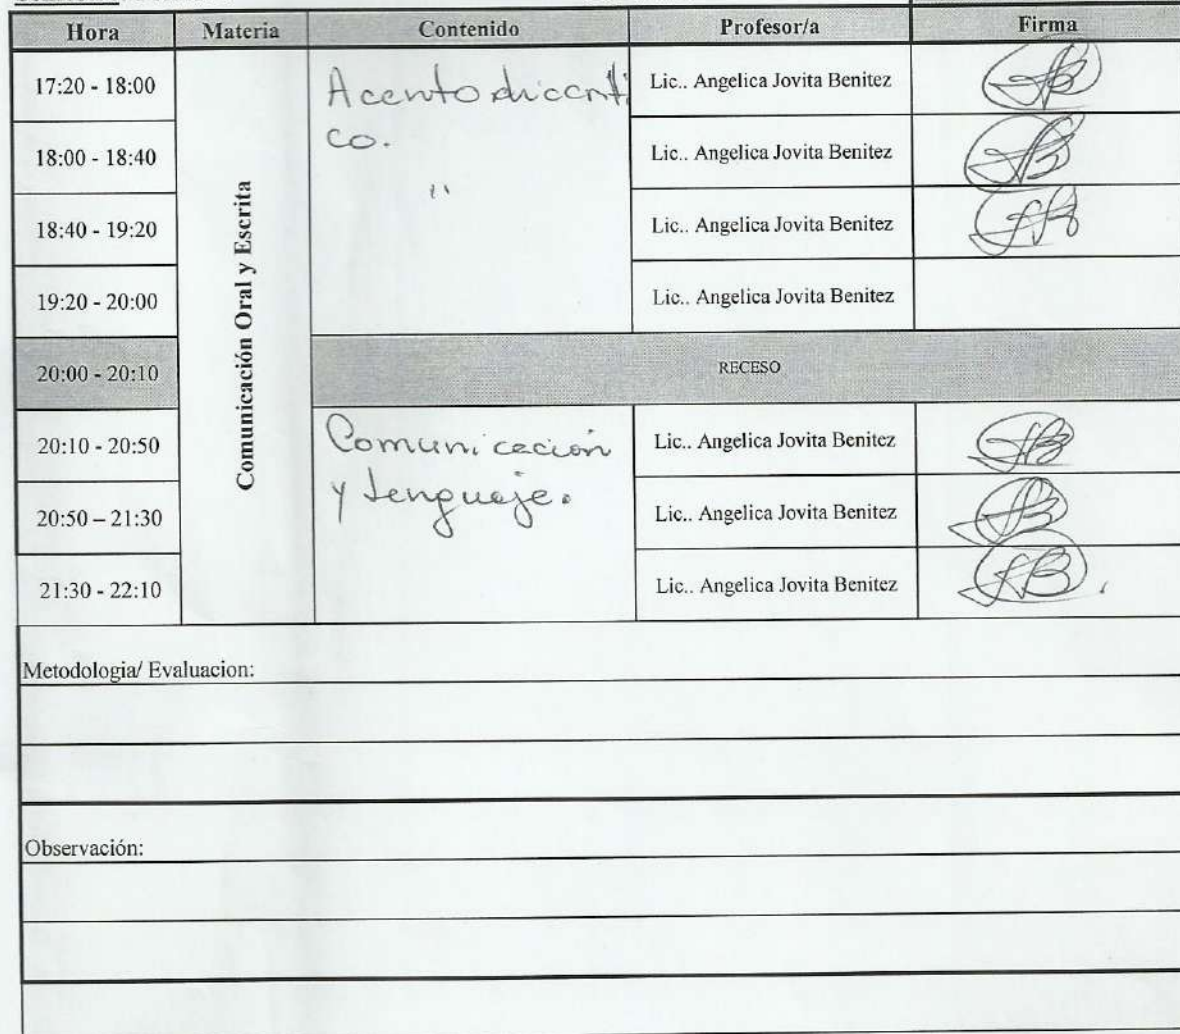 Hora Materia Contenido Profesor/a Firma
17:20 - 18:00 Acento diacríti Lic.. Angelica Jovita Benitez
18:00 - 18:40 co. Lic.. Angelica Jovita Benitez
18:40 - 19:20 " Lic.. Angelica Jovita Benitez
19:20 - 20:00 Lic.. Angelica Jovita Benitez
Comunicación Oral y Escrita
20:00 - 20:10 RECESO
20:10 - 20:50 Comunicación Lic.. Angelica Jovita Benitez
20:50 – 21:30 y lenguaje. Lic.. Angelica Jovita Benitez
21:30 - 22:10 Lic.. Angelica Jovita Benitez
Metodologia/ Evaluacion:
Observación: